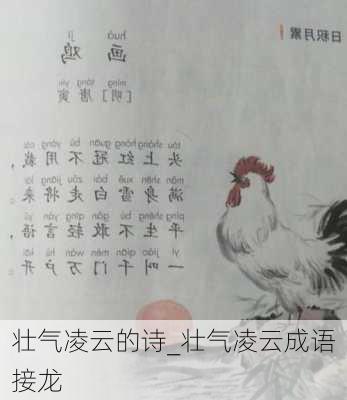 日积月累
huà jī
画 鸡
míng táng yín
[明] 唐 寅
tóu shàng hóng guān bú yòng cái
头上红冠不用裁，
mǎn shēn xuě bái zǒu jiāng lái
满身雪白走将来。
píng shēng bù gǎn qīng yán yǔ
平生不敢轻言语，
yí jiào qiān mén wàn hù kāi
一叫千门万户开
壮气凌云的诗_壮气凌云成语
接龙